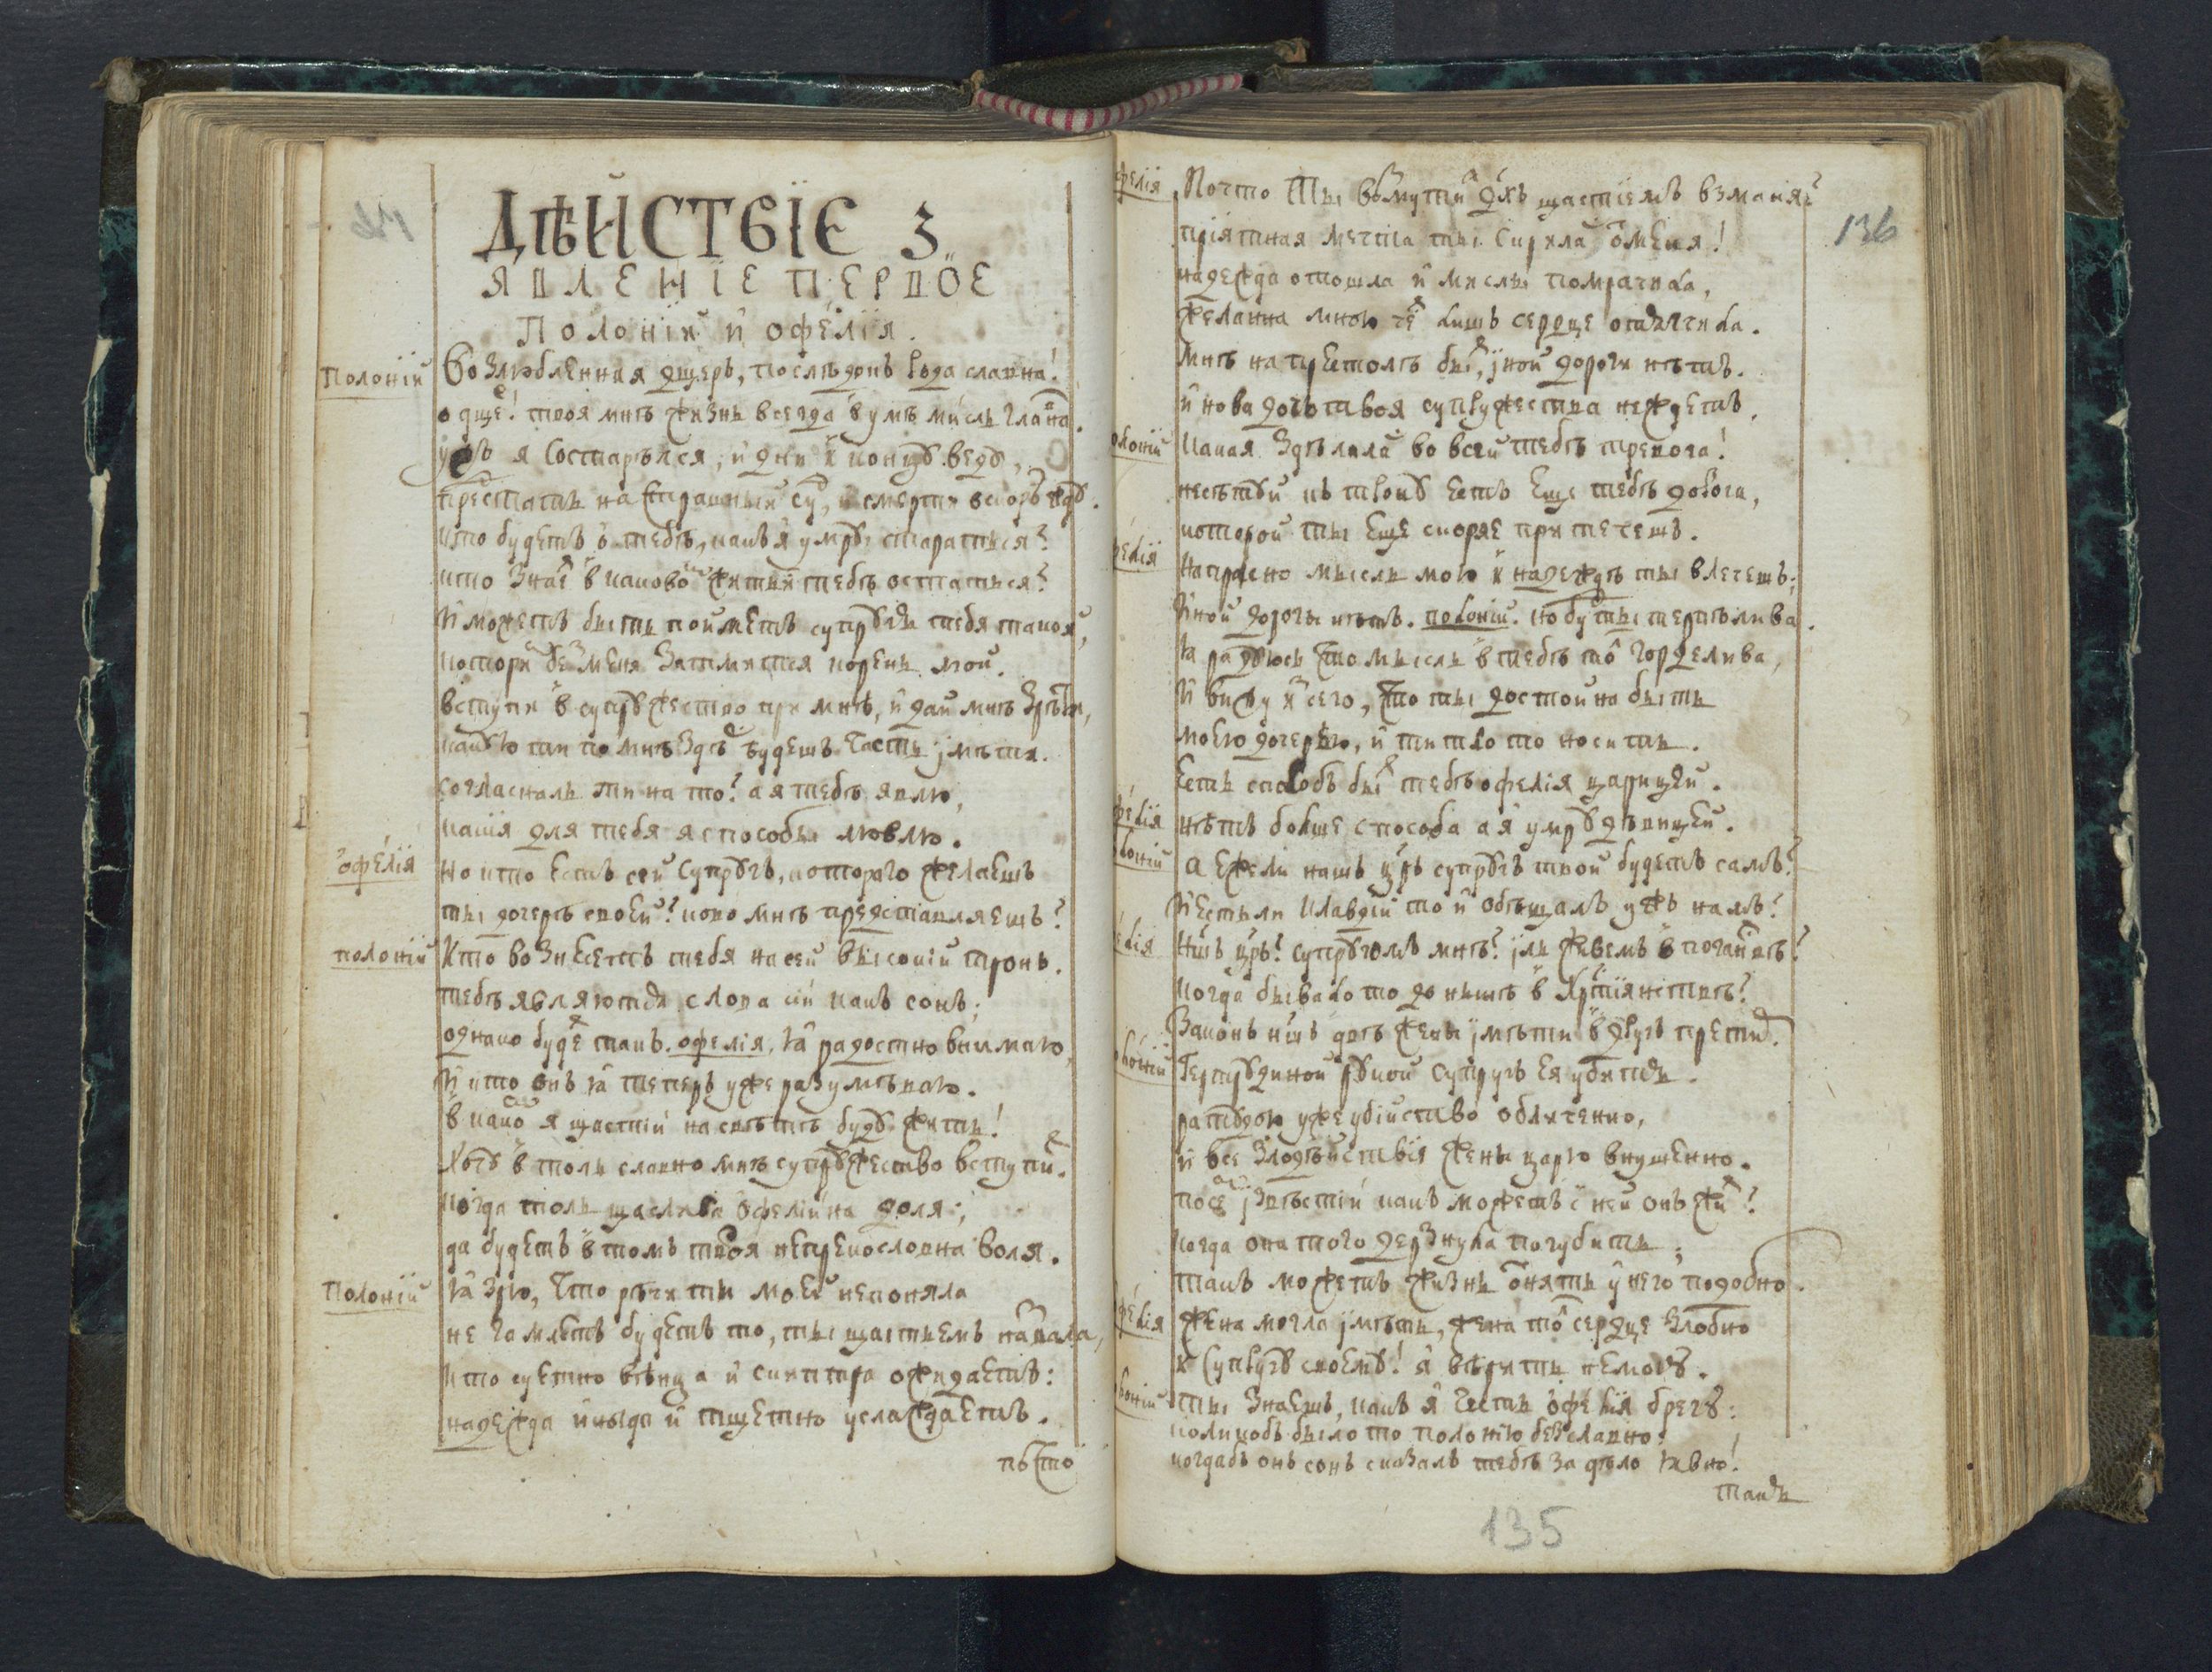 ДѢЙСТВІЕ 3
ЯВЛЕНІЕ ПЕРВОЕ
Полоній и Офелія.
Полоній
Возлюбленная дщерь, послѣдокъ рода славна!
о дще! твоя мнѣ жизнь всегда в умѣ мисль главна.
ужъ я состарѣлся, и дни к концу веду,
престать на страшный су, и смерти вскорѣ жду.
кто будетъ о тебѣ, какъ я умру старатися?
кто знае в каково житии тебѣ остаться?
И можетъ быть пойметъ супругъ тебя такой,
котори бе меня затмится корень мой.
вступи в супружество при мнѣ, и дай мнѣ зрѣти,
какую ти по мнѣ здѣ будешъ часть імѣти.
согласналь ти на то? а я тебѣ явлю,
какія для тебя я способы ловлю.
офелія
но кто есть сей супругъ, котораго желаешъ
ты дочерѣ своей? ково мнѣ представляешъ?
полоній
Кто вознесетъ тебя на сей высокій тронъ.
тебѣ являются слова сій какъ сонъ;
однако буде такъ. офелія. я радостно внимаю,
И кто онъ я теперъ уже разумѣваю.
в како я щастій на свѣтѣ буду жить!
хочу в толь славно мнѣ супружество вступи.
когда толь щаслива офеліина доля;
да будетъ в томъ твоя непрекословна воля.
Полоній
Я зрю, что рѣчи ти моей непоняла
не гамлетъ будетъ то, ты щастьемъ назвала,
кто суетно вѣнца и скиптра ожидаетъ:
надежда иногда и тщетно услаждаетъ.
пѣсто
136
офелія
Почто ты возмути духъ щастіемъ взманя?
пріятная мечта ты скрила о меня!
надежда отошла и мислы помрачила,
желанна мною че лишъ сердце отягчила.
Мнѣ на престолѣ бы, іной дороги нѣтъ.
и нова дочь твоя супружества не ждетъ.
полоній
Какая здѣлала во всей тебѣ тревога!
несѣтуй къ трону есть еще тебѣ дорога,
которой ты еще скоряе притечешъ.
офелія
Напрасно мысль мою к надеждѣ ты влечешъ;
Иной дороги нѣтъ. полоній. но бу ты терпѣлива.
Я радуюсь что мысль в тебѣ то горделива,
И вижу и сего, что ты достойна быть
моею дочерью, и титло то носить.
Есть способъ бы тебѣ офелія царицей.
офелія
нѣтъ болше способа а я умру дѣвицей.
полоній
А ежели нашъ црь супругъ твой будетъ самъ?
И естьли клавдій то и обѣщалъ ужъ намъ?
офелія
Ншъ црь? супругомъ мнѣ? іли живемъ в поганствѣ?
когда бывало то донынѣ в хрстіянствѣ?
Законъ ншъ двѣ жены імѣти в другъ прети.
полоній
Гертрудиной рукой супругъ ея убитъ.
ратудою уже убійство обличенно,
и все злодѣйствія жены царю внушенно.
посе ізвѣстій какъ можетъ с ней онъ жи?
когда она того дерзнула погубить;
такъ можетъ жизнь оняти у него подобно.
офелія
жена могла імѣть, жена то сердце злобно
к супругу своему! я вѣрить немогу.
полоній
ты знаешъ, какъ я честь офелія брегу:
коликобъ было то полонію безславно,
когдабъ онъ сонъ сказалъ тебѣ за дѣло явно!
такъ
135